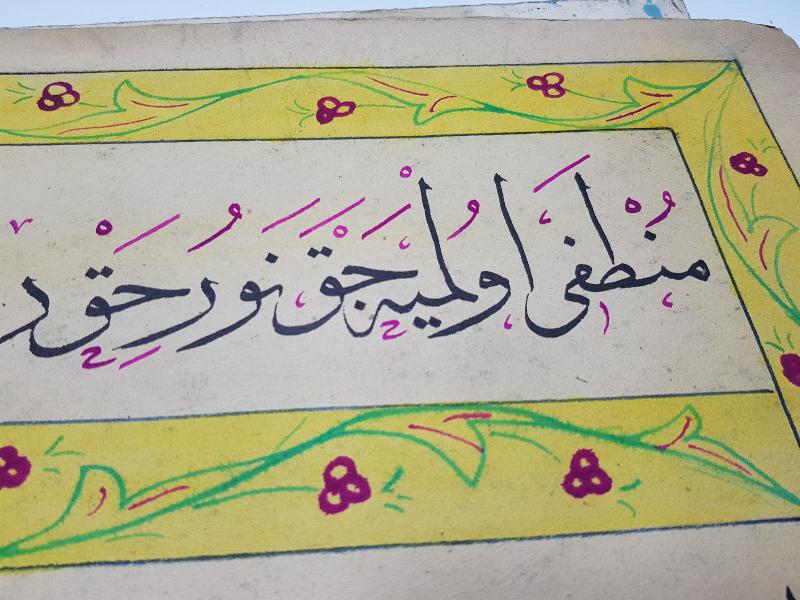 منطفى اولميه جق نور حق در